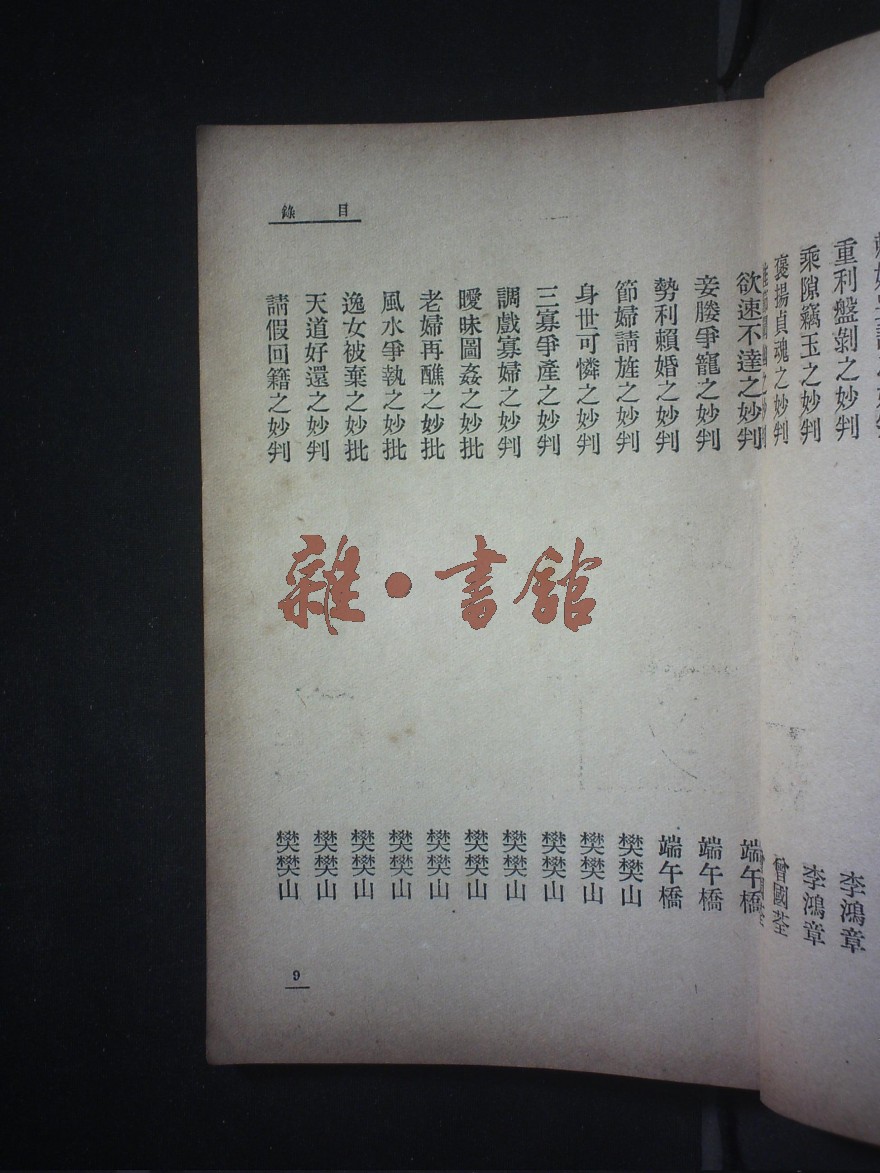 重利盤剝之妙判 李鴻章
乘隙竊玉之妙判 李鴻章
褒揚貞魂之妙判 曾國荃
目錄
欲速不達之妙判 端午橋
妾媵爭寵之妙判 端午橋
勢利賴婚之妙判 端午橋
節婦請旌之妙判 樊樊山
身世可憐之妙判 樊樊山
三寡爭產之妙判 樊樊山
調戲寡婦之妙判 樊樊山
曖昧圖姦之妙批 樊樊山
老婦再醮之妙批 樊樊山
風水爭執之妙批 樊樊山
逸女被棄之妙批 樊樊山
天道好還之妙判 樊樊山
請假回籍之妙判 樊樊山
9
雜·書館